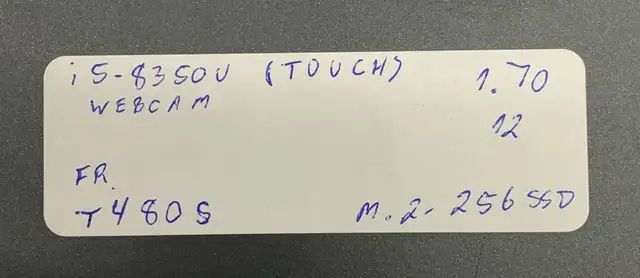 i5-8350U (TOUCH) 1.70
WEBCAM
12
FR.
T480S M.2- 256 SSD